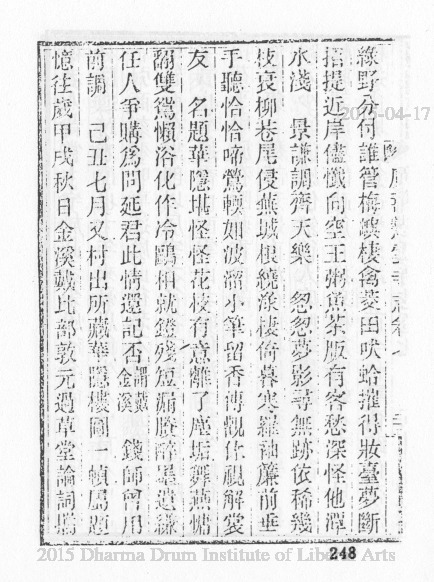 綠野分付誰管梅嶼棲禽菱田吠蛤摧得妝臺夢斷
招提近岸儘懺向空王粥魚茶版有客愁深怪他潭
水淺　景謙調齊天樂　怱怱夢影尋無跡依稀幾
枝衰柳巷尾侵燕城根繞淥棲倚暮寒羅袖簾前垂
手聽恰恰啼鶯輭如波溜小筆留香傳觀佳視解裳
友　名題華隱堪怪怪花枝有意離了塵垢舞燕慵
翻雙鴛懶浴化作冷鷗相就鏤殘短漏賸醉墨遺縑
任人爭購爲問延君此情還記否謂戴金溪　錢師曾用
前調　己丑七月又村出所藏華隱樓圖一幀屬題
憶往歲甲戌秋日金溪戴比部敦元過草堂論詞
248
2015 Dharma Drum Institute of Liberal Arts